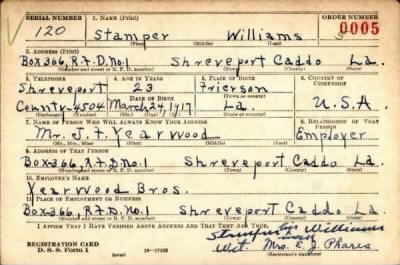 SERIAL NUMBER 1. NAME (Print) ORDER NUMBER
120 Stamper Williams 0005
(First) (Middle) (Last)
2. ADDRESS (Print)
Box 366, R.F.D. No.1 Shreveport Caddo La.
(Number and street or R. F. D. number) (Town) (County) (State)
3. TELEPHONE 4. AGE IN YEARS 5. PLACE OF BIRTH 6. COUNTRY OF CITIZENSHIP
Shreveport 23 Frierson
DATE OF BIRTH (Town or county)
County-4504 March 24, 1917 La U.S.A.
(Exchange) (Number) (Mo.) (Day) (Yr.) (State or country)
7. NAME OF PERSON WHO WILL ALWAYS KNOW YOUR ADDRESS 8. RELATIONSHIP OF THAT PERSON
Mr. J. F. Yearwood Employer
(Mr., Mrs., Miss) (First) (Middle) (Last)
9. ADDRESS OF THAT PERSON
Box 366, R.F.D. No 1 Shreveport Caddo La.
(Number and street or R. F. D. number) (Town) (County) (State)
10. EMPLOYER'S NAME
Yearwood Bros.
11. PLACE OF EMPLOYMENT OR BUSINESS
Box 366, R.F.D. No.1 Shreveport Caddo La.
(Number and street or R. F. D. number) (Town) (County) (State)
I AFFIRM THAT I HAVE VERIFIED ABOVE ANSWERS AND THAT THEY ARE TRUE.
Stamper Williams
Wit. Mrs. E. J. Phares
REGISTRATION CARD
D. S. S. Form 1 16-17105 (Registrant's signature)